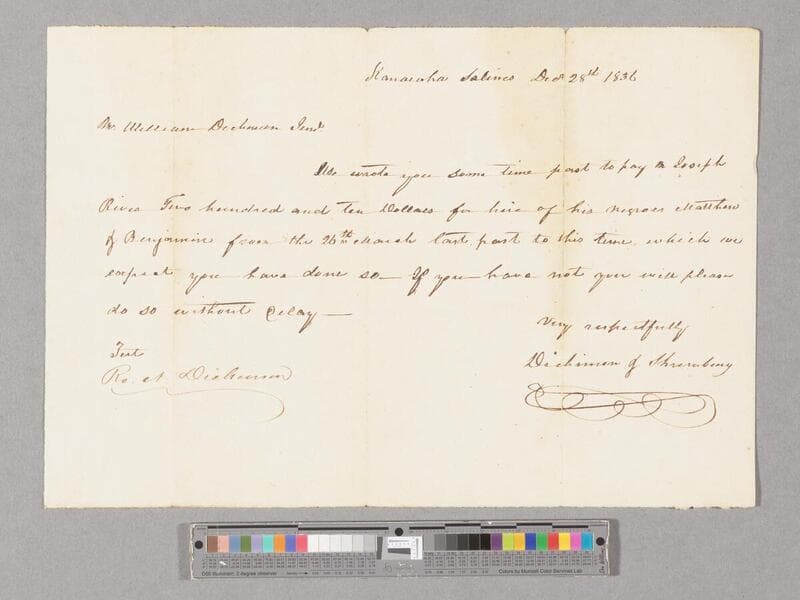 Kanawha Salines Decr 28th 1836
Mr. William Dickinson Senr
We wrote you some time past to pay Mr Joseph
Rives Two hundred and ten Dollars for hire of his negroes Matthew
& Benjamin from the 26th March last past to this time, which we
expect you have done so — If you have not you will please
do so without delay —
Very respectfully
Test
Dickinson & Shrewsbury
Ro. Dickinson
Colors by Munsell Color Services Lab